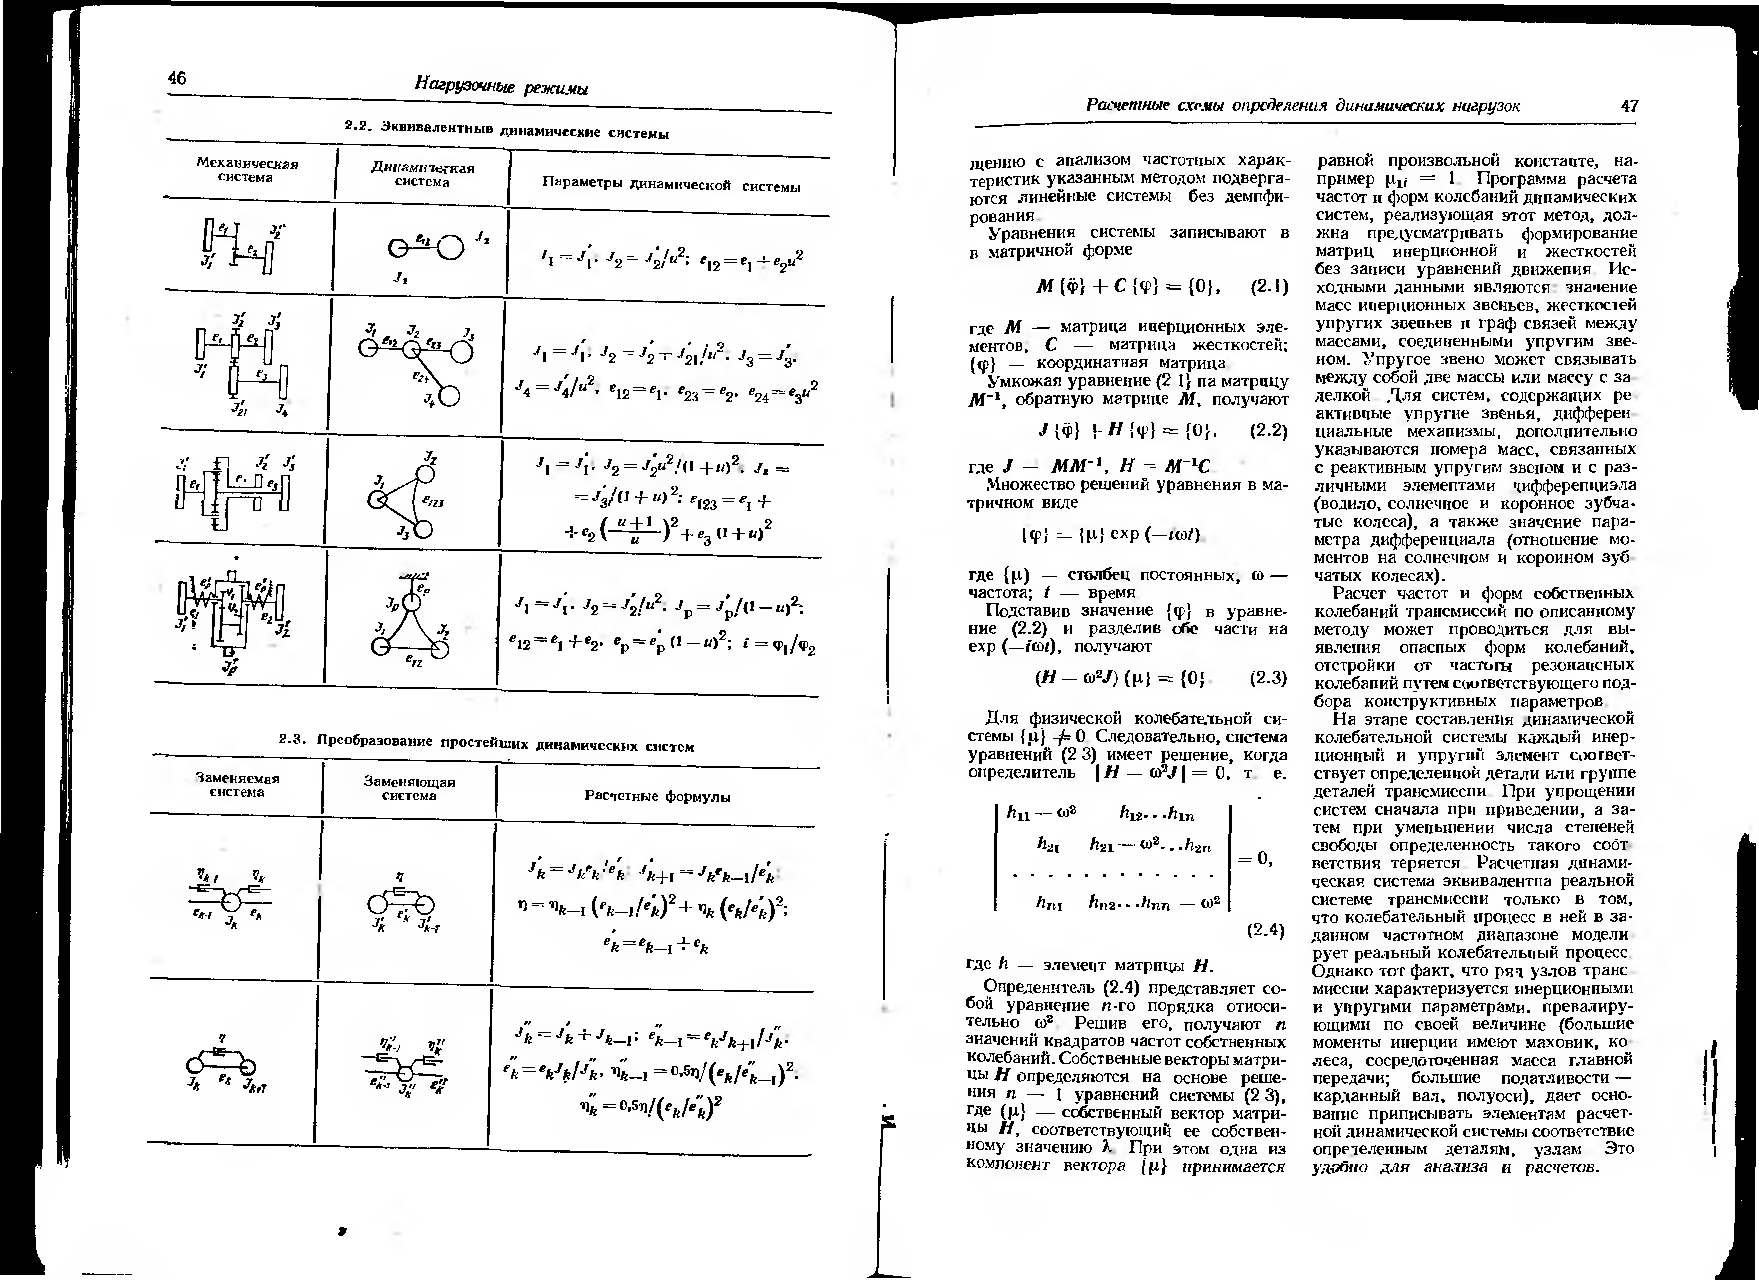 46
Нагрузочные режимы
2.2. Эквивалентные динамические системы
Механическая система
Динамическая система
Параметры динамической системы
J₁ = J′₁; J₂ = J′₂/u²; e₁₂ = e₁ + e₂u²
J₁ = J′₁; J₂ = J′₂ + J′₂₁/u²; J₃ = J′₃;
J₄ = J′₄/u²; e₁₂ = e₁; e₂₃ = e₂; e₂₄ = e₃u²
J₁ = J′₁; J₂ = J′₂u²/(1 + u)²; J₃ =
= J′₃/(1 + u)²; e₁₂₃ = e₁ +
+ e₂ ((u + 1)/u)² + e₃ (1 + u)²
J₁ = J′₁; J₂ = J′₂/u²; Jр = J′р/(1 — u)²;
e₁₂ = e₁ + e₂; eр = e′р (1 — u)²; i = φ₁/φ₂
2.3. Преобразование простейших динамических систем
Заменяемая система
Заменяющая система
Расчетные формулы
J′k = Jkek/e′k J′k+1 = Jkek—1/e′k
η = ηk—1 (ek—1/e′k)² + ηk (ek/e′k)²;
e′k = ek—1 + ek
J″k = J′k + Jk—1; e″k—1 = ekJk+1/J″k;
e″k = ekJk/J″k; η″k—1 = 0,5η/(ek/e″k—1)²;
η″k = 0,5η/(ek/e″k)²
Расчетные схемы определения динамических нагрузок
47
щению с анализом частотных харак-
теристик указанным методом подверга-
ются линейные системы без демпфи-
рования
Уравнения системы записывают в
в матричной форме
M {φ̈} + C {φ} = {0}, (2.1)
где M — матрица инерционных эле-
ментов, C — матрица жесткостей;
{φ} — координатная матрица
Умножая уравнение (2 1) на матрицу
M⁻¹, обратную матрице M, получают
J {φ̈} + H {φ} = {0}, (2.2)
где J — MM⁻¹, H = M⁻¹C
Множество решений уравнения в ма-
тричном виде
{φ} = {μ} exp (—iωt)
где {μ} — столбец постоянных, ω —
частота; t — время
Подставив значение {φ} в уравне-
ние (2.2) и разделив обе части на
exp (—iωt), получают
(H — ω²J) {μ} = {0} (2.3)
Для физической колебательной си-
стемы {μ} ≠ 0 Следовательно, система
уравнений (2 3) имеет решение, когда
определитель | H — ω²J | = 0, т е.
h₁₁ — ω² h₁₂. . .h₁n
h₂₁ h₂₁ — ω². . .h₂n
. . . . . . . . . . . . . = 0,
hn₁ hn₂. . .hnn — ω²
(2.4)
где h — элемент матрицы H.
Определитель (2.4) представляет со-
бой уравнение n-го порядка относи-
тельно ω² Решив его, получают n
значений квадратов частот собственных
колебаний. Собственные векторы матри-
цы H определяются на основе реше-
ния n — 1 уравнений системы (2 3),
где {μ} — собственный вектор матри-
цы H, соответствующий ее собствен-
ному значению λ При этом одна из
компонент вектора {μ} принимается
равной произвольной константе, на-
пример μ₁i = 1 Программа расчета
частот и форм колебаний динамических
систем, реализующая этот метод, дол-
жна предусматривать формирование
матриц инерционной и жесткостей
без записи уравнений движения Ис-
ходными данными являются значение
масс инерционных звеньев, жесткостей
упругих звеньев и граф связей между
массами, соединенными упругим зве-
ном. Упругое звено может связывать
между собой две массы или массу с за
делкой Для систем, содержащих ре
активные упругие звенья, дифферен
циальные механизмы, дополнительно
указываются номера масс, связанных
с реактивным упругим звеном и с раз-
личными элементами дифференциэла
(водило, солнечное и коронное зубча-
тые колеса), а также значение пара-
метра дифференциала (отношение мо-
ментов на солнечном и коронном зуб
чатых колесах).
Расчет частот и форм собственных
колебаний трансмиссий по описанному
методу может проводиться для вы-
явления опасных форм колебаний,
отстройки от частоты резонансных
колебаний путем соответствующего под-
бора конструктивных параметров
На этапе составления динамической
колебательной системы каждый инер-
ционный и упругий элемент соответ-
ствует определенной детали или группе
деталей трансмиссии При упрощении
систем сначала при приведении, а за-
тем при уменьшении числа степеней
свободы определенность такого соот
ветствия теряется Расчетная динами-
ческая система эквивалентна реальной
системе трансмиссии только в том,
что колебательный процесс в ней в за-
данном частотном диапазоне модели
рует реальный колебательный процесс
Однако тот факт, что ряд узлов транс
миссии характеризуется инерционными
и упругими параметрами, превалиру-
ющими по своей величине (большие
моменты инерции имеют маховик, ко
леса, сосредоточенная масса главной
передачи; большие податливости —
карданный вал, полуоси), дает осно-
вание приписывать элементам расчет-
ной динамической системы соответствие
определенным деталям, узлам Это
удобно для анализа и расчетов.